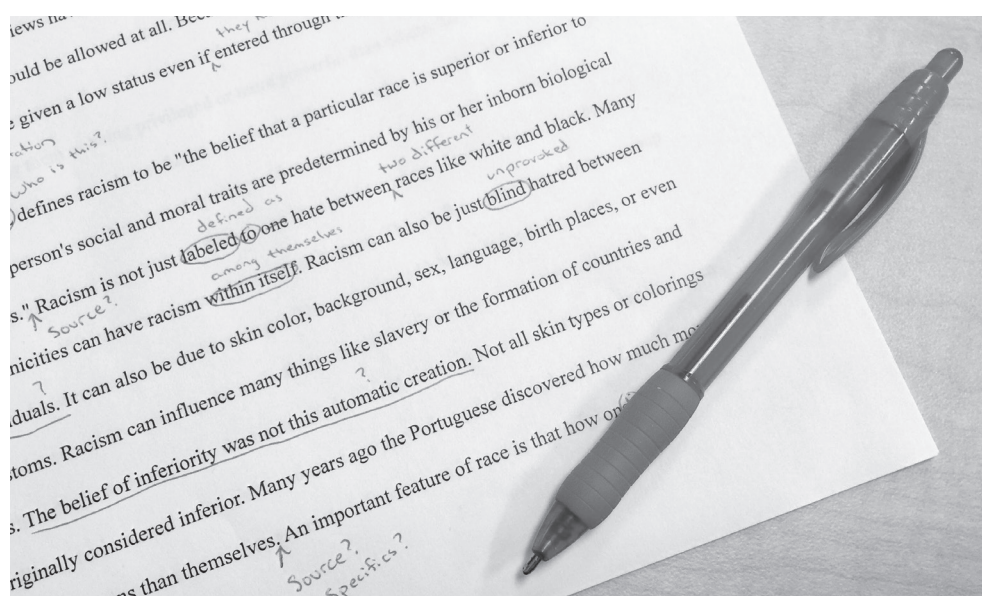 iews
ould be allowed at all.
they
e given a low status even if entered through
defines racism to be "the belief that a particular race is superior or inferior to
Who is this?
person's social and moral traits are predetermined by his or her inborn biological
two different
s." Racism is not just labeled to one hate between races like white and black. Many
defined as
unprovoked
Source?
nicities can have racism within itself. Racism can also be just blind hatred between
among themselves
?
duals. It can also be due to skin color, background, sex, language, birth places, or even
stoms. Racism can influence many things like slavery or the formation of countries and
?
s. The belief of inferiority was not this automatic creation. Not all skin types or colorings
riginally considered inferior. Many years ago the Portuguese discovered how much
ns than themselves. An important feature of race is that how
Source?
Specifics?